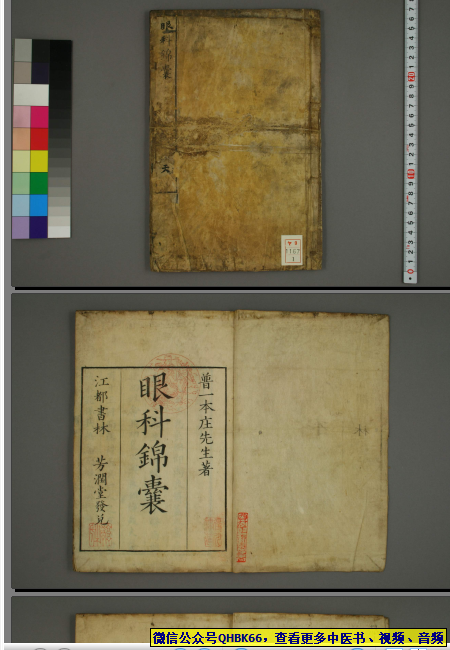 眼科錦囊
大
普一本庄先生著
眼科錦囊
江都書林 芳潤堂發兌
微信公众号QHBK66，查看更多中医书、视频、音频